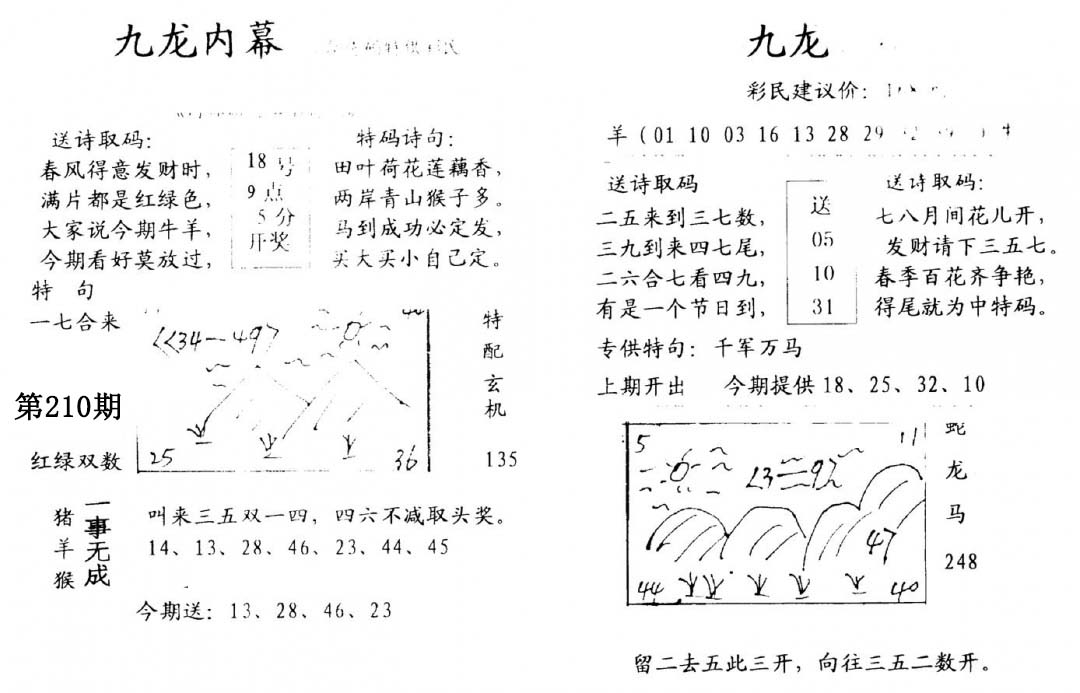 九龙内幕
送诗取码：
春风得意发财时，
满片都是红绿色，
大家说今期牛羊，
今期看好莫放过，
18号
9点
5分
开奖
特码诗句：
田叶荷花莲藕香，
两岸青山猴子多。
马到成功必定发，
买大买小自己定。
特 句
一七合来
第210期
红绿双数
<<34—49>
25
36
特
配
玄
机
135
猪
羊
猴
一事无成
叫来三五双一四，四六不减取头奖。
14、13、28、46、23、44、45
今期送：13、28、46、23
九龙
彩民建议价：
羊（01 10 03 16 13 28 29
送诗取码
二五来到三七数，
三九到来四七尾，
二六合七看四九，
有是一个节日到，
送
05
10
31
送诗取码：
七八月间花儿开，
发财请下三五七。
春季百花齐争艳，
得尾就为中特码。
专供特句：千军万马
上期开出 今期提供 18、25、32、10
5
11
47
44
40
蛇
龙
马
248
留二去五此三开，向往三五二数开。